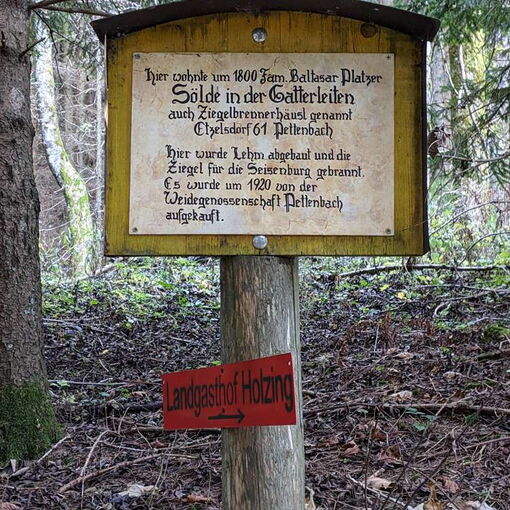 Hier wohnte um 1800 Fam. Baltasar Platzer
Sölde in der Gatterleiten
auch Ziegelbrennerhäusl genannt
Etzelsdorf 61 Pettenbach
Hier wurde Lehm abgebaut und die
Ziegel für die Seisenburg gebrannt.
Es wurde um 1920 von der
Weidegenossenschaft Pettenbach
aufgekauft.
Landgasthof Holzing